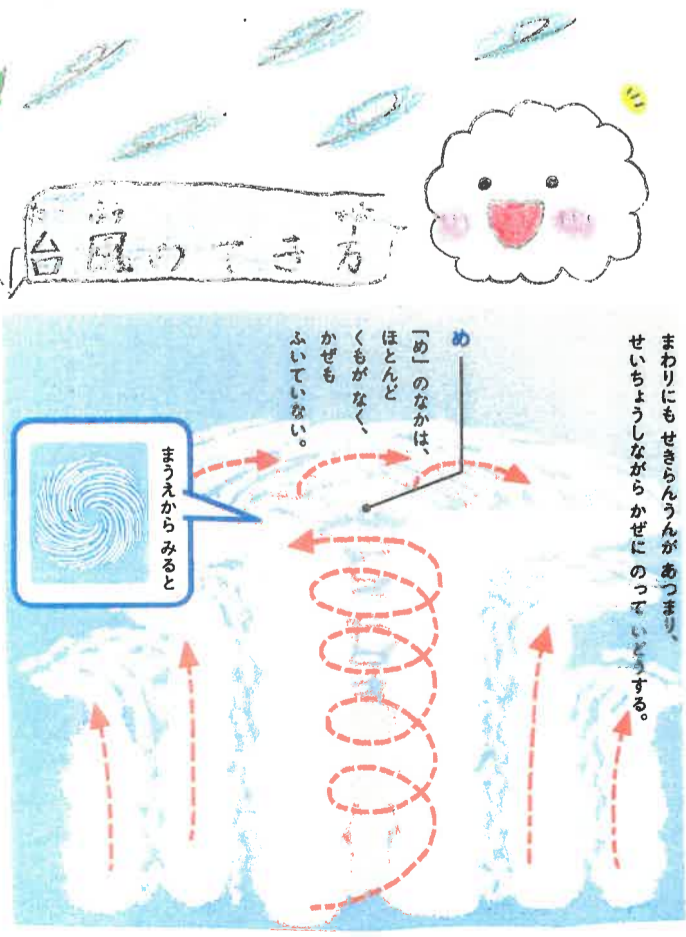 台風のでき方
まわりにも せきらんうんが あつまり、
せいちょうしながら かぜに のって いどうする。
め
「め」のなかは、
ほとんど
くもがなく、
かぜも
ふいていない。
まうえから みると